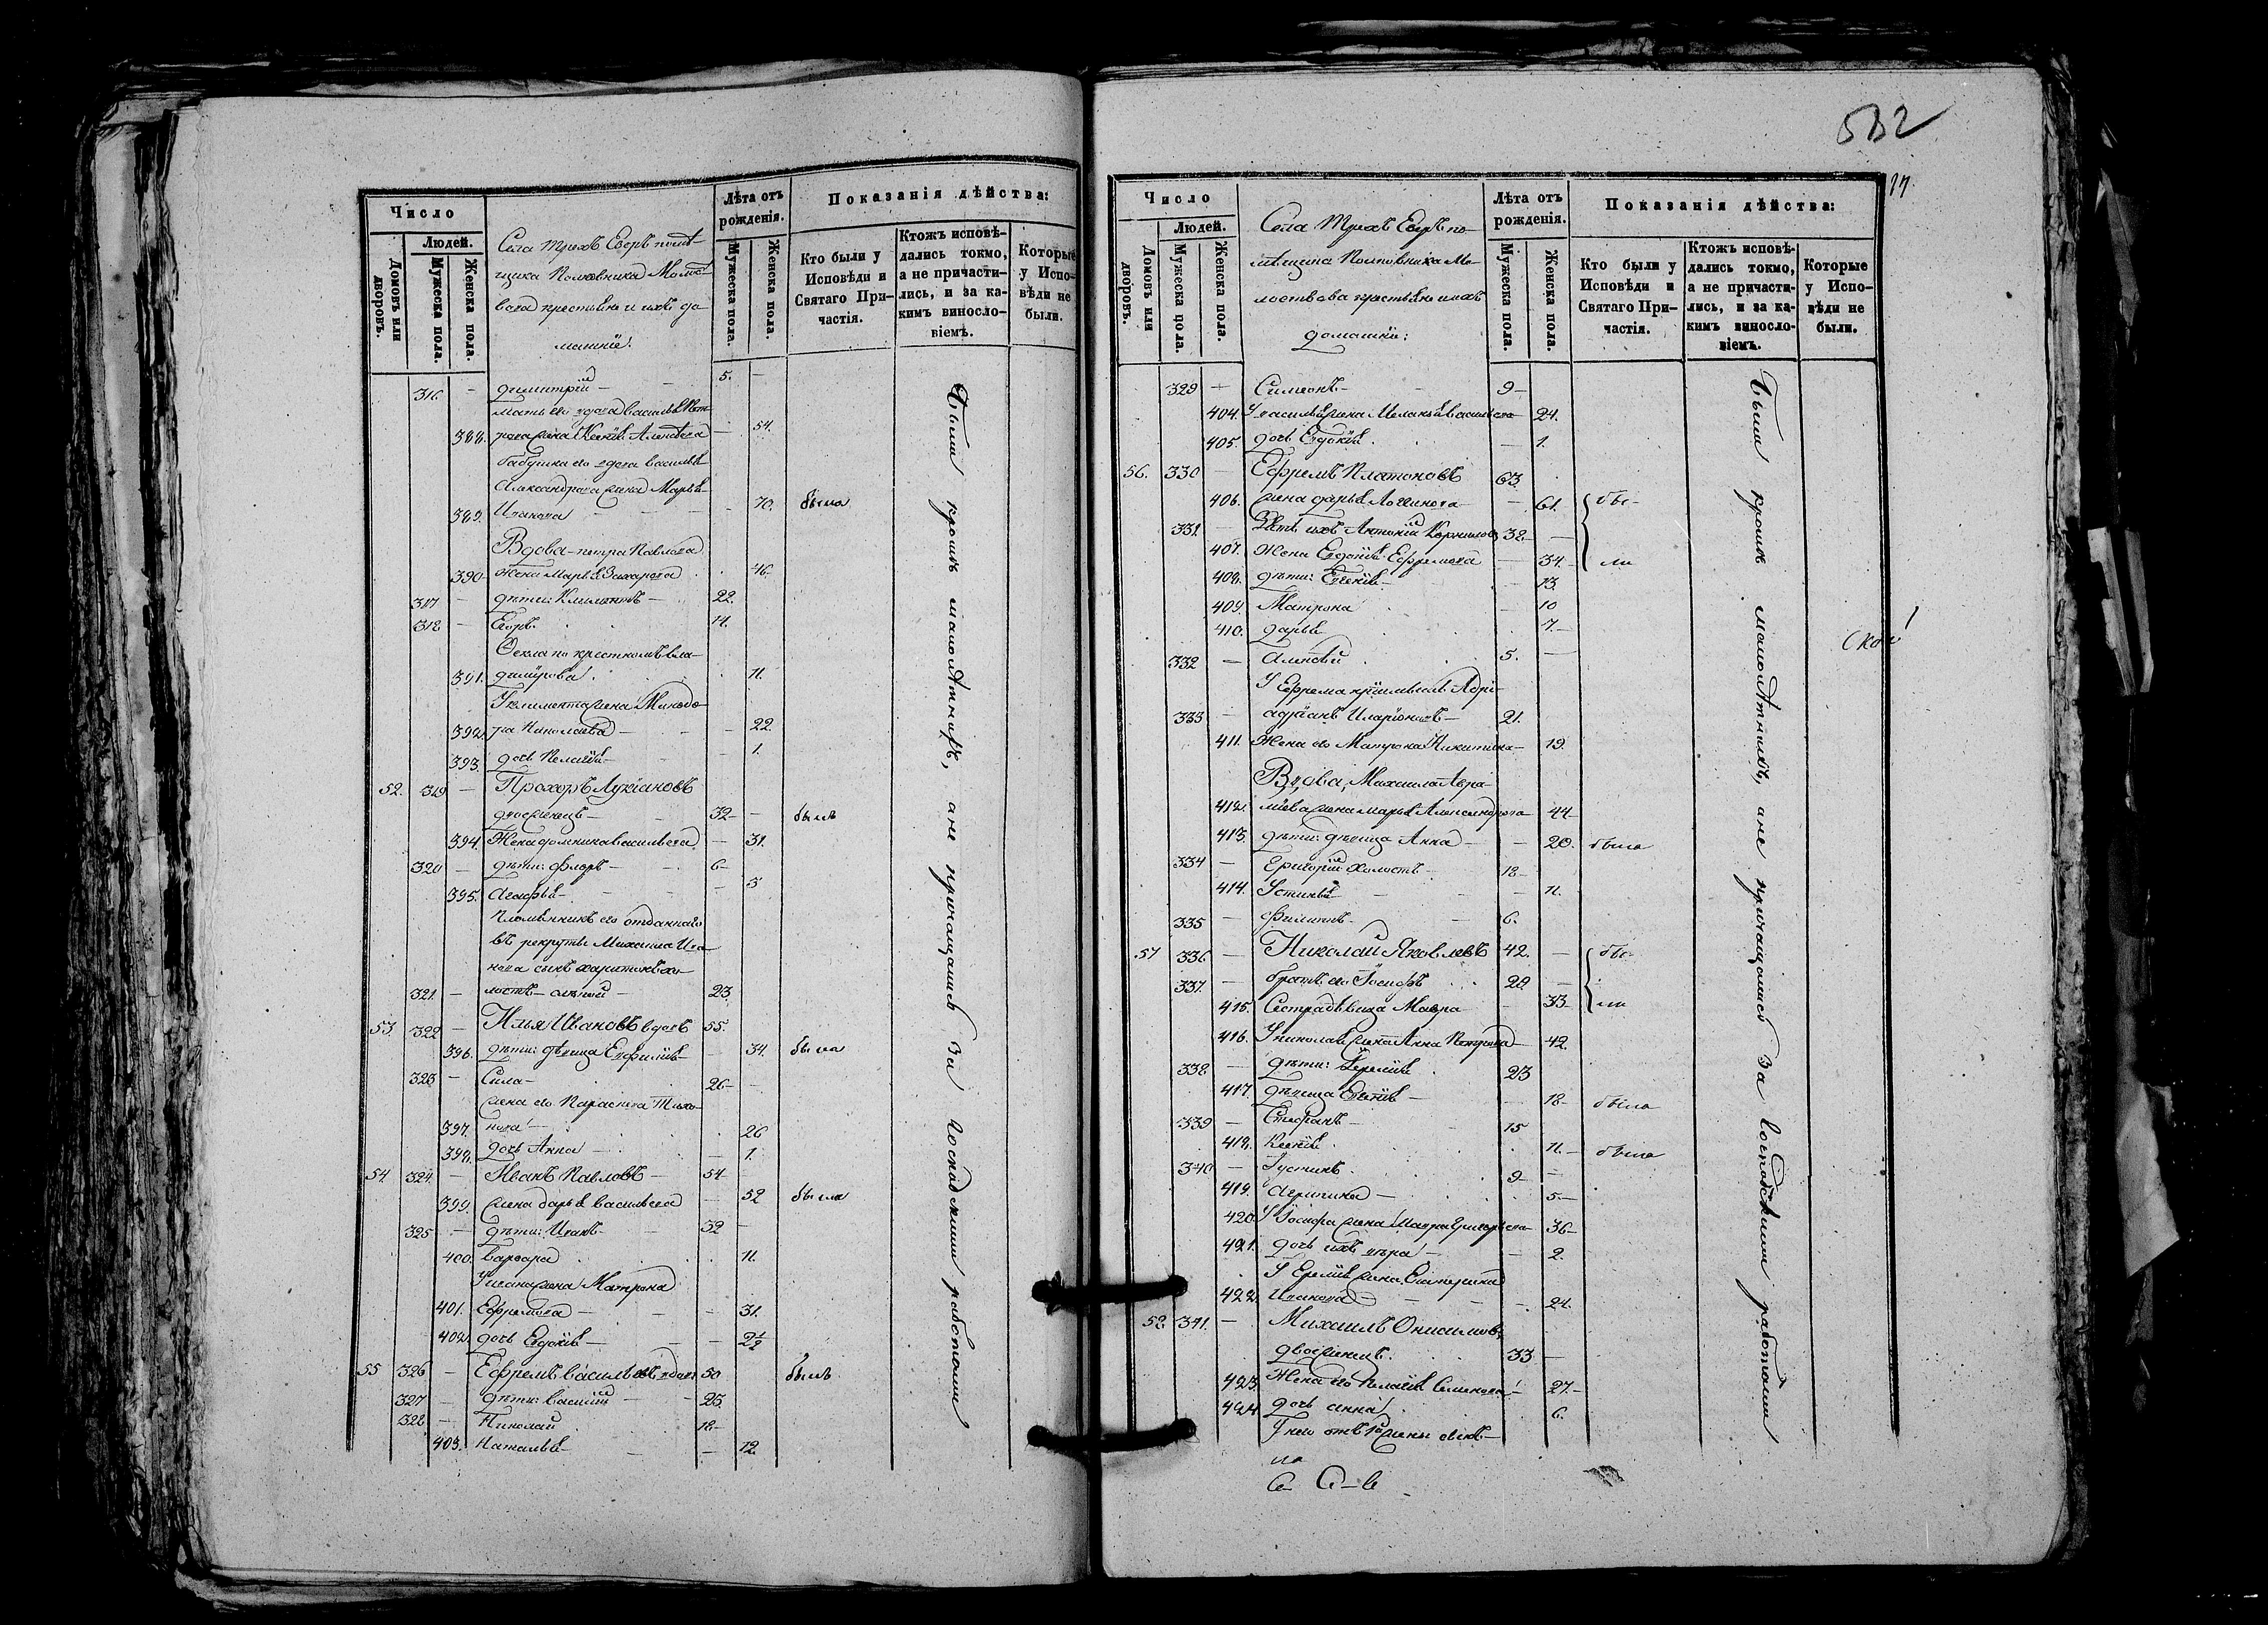 Число
Людей.
Домовъ или дворовъ.
Мужеска пола.
Женска пола.
Села Трехъ Езеръ помѣ-
щика Полковника Молост-
вова крестьяне и ихъ до-
машніе:
Лѣта отъ рожденія.
Мужеска пола.
Женска пола.
Показанія дѣйства:
Кто были у Исповѣди и Святаго При-
частія.
Ктожъ исповѣ-
дались токмо,
а не причасти-
лись, и за ка-
кимъ виносло-
віемъ.
Которые
у Испо-
вѣди не
были.
316. – Димитрій – 5. –
мать его вдова Василья Пет-
388. рова жена Ксенія Алексѣева – 54.
бабушка его вдова Василья
Александрова жена Марья
389. Иванова – 70. была
Вдова Петра Павлова
390 жена Марья Захарова 46
317 – дѣти: Климентъ – 22.
318 – Егоръ 14.
Ѳекла по крестномъ Вла-
391. димірова 11.
У Климента жена Минодо-
392. ра Николаева – 22.
393. дочь Пелагія – 1.
52. 319 – Прохоръ Лукіановъ
двоеженецъ – 32 – былъ
394. Жена Домника Васильева – 31.
320 – дѣти: Флоръ – 6 –
395. Агафья – 3
Племянникъ его отданнаго
въ рекруты Михаила Ива-
нова сынъ Харитонъ хо-
321. – лостъ – слѣпой – 23.
53. 322 – Илья Ивановъ вдовъ 55.
396. дѣти: дѣвица Евфимія – 34. была
323 – Сила – 26 –
жена его Параскева Тихо-
397. нова 26
398. дочь Анна – 1.
54 324. – Иванъ Павловъ – 54 –
399. жена Дарья Васильева – 52 была
325 – дѣти: Иванъ – 32 –
400. Варвара 11.
У Ивана жена Матрона
401. Ефремова – 31.
402. дочь Евдокія – 2½
55 326 – Ефремъ Васильевъ вдовъ 50 былъ
327 – дѣти: Василій – 25
328 – Николай 18 –
403. Наталья – 12.
Были кромѣ малолѣтнихъ, а не причащались за господскими работами
532
17.
Число
Людей.
Домовъ или дворовъ.
Мужеска пола.
Женска пола.
Села Трехъ Езеръ по-
мѣщика Полковника Мо-
лоствова крестьяне и ихъ
домашніе:
Лѣта отъ рожденія.
Мужеска пола.
Женска пола.
Показанія дѣйства:
Кто были у
Исповѣди и
Святаго При-
частія.
Ктожъ исповѣ-
дались токмо,
а не причасти-
лись, и за ка-
кимъ виносло-
віемъ.
Которые
у Испо-
вѣди не
были.
329 – Симеонъ – 9 –
404. У Василья жена Меланья Васильева – 24.
405. дочь Евдокія – 1.
56. 330 – Ефремъ Платоновъ 63.
406. жена Дарья Логинова – 61. бы-
331. – Зять ихъ Антоній Корниловъ 32 –
407. Жена Евдокія Ефремова – 34. – ли
408. дѣти: Евгенія – 13
409. Матрона 10
410. Дарья 7. –
332 – Алексѣй 5. –
У Ефрема пріемышъ
333 – Адріанъ Иларіоновъ – 21.
411. Жена его Матрона Никитина – 19.
Вдова, Михаила Авра-
412. міева жена Марья Александрова 44 –
413. дѣти: дѣвица Анна – 20. была
334 – Григорій холостъ – 18 –
414. Устинья – 11.
335 – Филиппъ – 6.
57 336 – Николай Яковлевъ 42. – бы-
337. – братъ его Іосифъ 28 –
415. Сестра дѣвица Мавра – 33 – ли
416. У Николая жена Анна Петрова – 42.
338 – дѣти: Іеремія 23
417. дѣвица Евгенія – 18 – была
339 – Стефанъ – 15
418. Ксенія 11. – была
340 – Іустинъ 9 –
419. Агрипина – 5 –
420. У Іосифа жена Мавра Григорьева – 36 –
421. дочь ихъ Вѣра – 2.
У Іереміи жена Екатерина
422. Иванова – 24.
58 341. – Михаилъ Онисимовъ,
двоеженецъ 33 –
423. Жена его Пелагія Семенова – 27. –
424. дочь Анна 6.
У него отъ 1й жены
Были кромѣ малолѣтнихъ, а не причащались за господскими работами